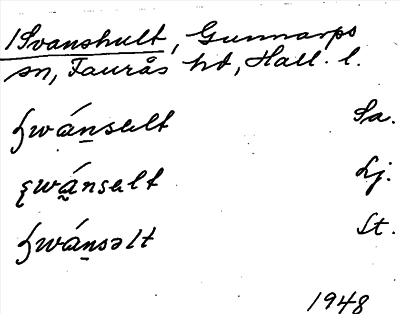 1 Svanshult, Gunnarps
sn, Faurås hd, Hall. l.
ꞩwáṉsult Sa.
swá̰nsult Lj.
ꞩwáṉsəlt St.
1948